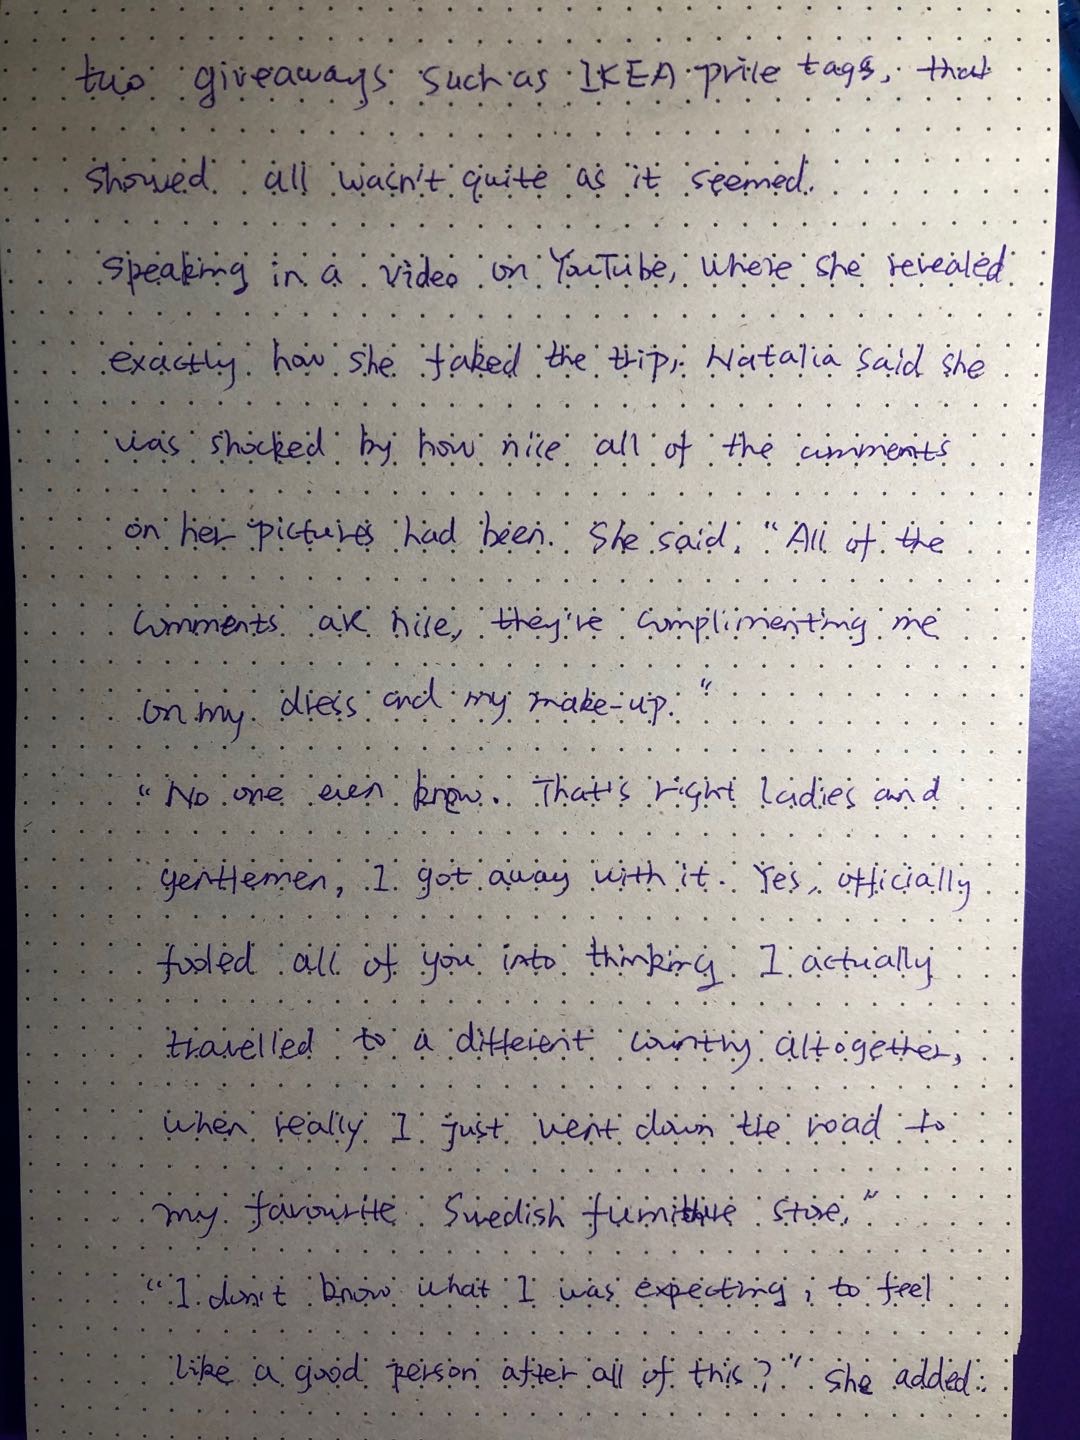 two giveaways such as IKEA price tags, that
showed all wasn't quite as it seemed.
Speaking in a video on YouTube, where she revealed
exactly how she faked the trip, Natalia said she
was shocked by how nice all of the comments
on her pictures had been. She said, "All of the
comments are nice, they're complimenting me
on my dress and my make-up."
"No one even knew. That's right ladies and
gentlemen, I got away with it. Yes, officially
fooled all of you into thinking I actually
travelled to a different country altogether,
when really I just went down the road to
my favourite Swedish furniture store,"
"I don't know what I was expecting, to feel
like a good person after all of this?" she added.